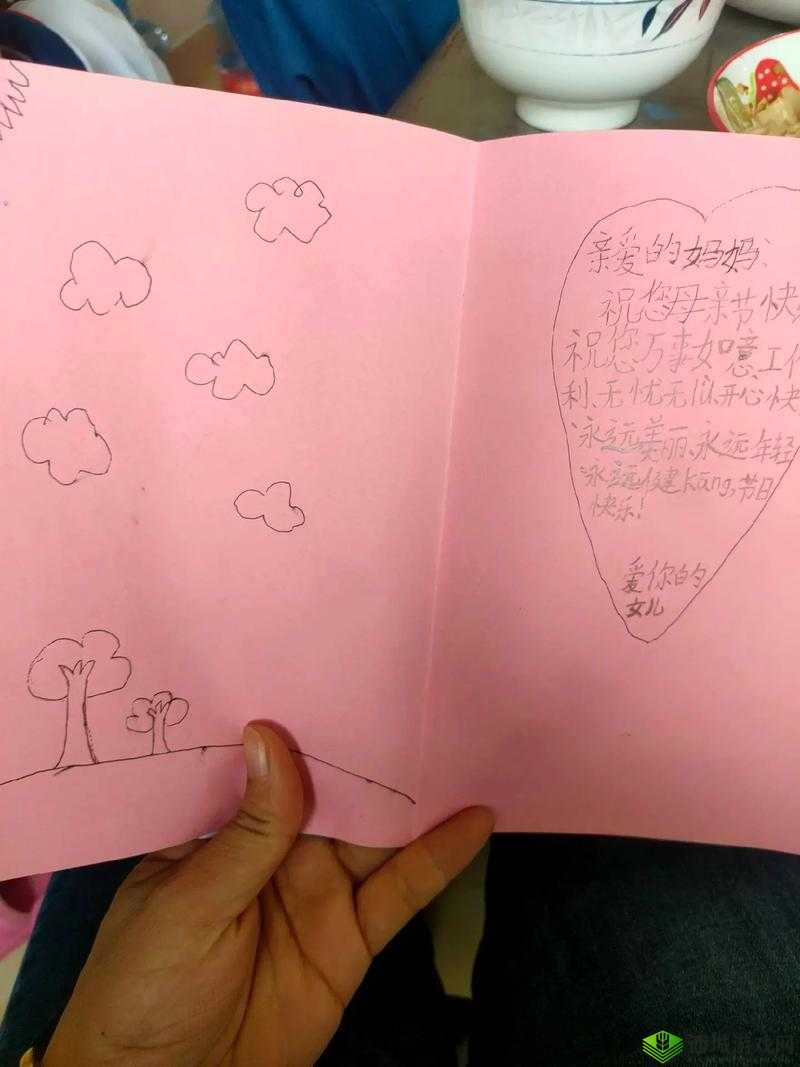 亲爱的妈妈:
祝您母亲节快
祝您万事如意工作
利、无忧无虑、开心快
永远美丽、永远年轻
永远健康kāng,节日
快乐!
爱你的
女儿